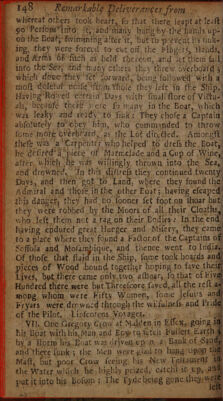 148 Remarkable Deliverances from
whereat others took heart, so that there leapt at least
90 Persons into it, and many hung by the hands up-
on the Boat, swimming after it, but to prevent its sink-
ing, they were forced to cut off the Fingers, Hands,
and Arms of such as held thereon, and let them fall
into the Sea, and many others they threw overboard;
which done they set forward, being followed with a
most doleful noise from those they left in the Ship.
Having floated certain Days with small store of Victu-
als, because there were so many in the Boat, which
was leaky and ready to sink: They chose a Captain
absolutely to obey him, who commanded to throw
some more overboard, as the Lot directed. Amongst
these was a Carpenter who helped to dress the Boat,
he desired a piece of Marmelade and a Cup of Wine,
after which he was willingly thrown into the Sea,
and drowned. In this distress they continued twenty
Days, and then got to Land, where they found the
Admiral and those in the other Boat; having escaped
this danger, they had no sooner set foot on shoar but
they were robbed by the Moors of all their Cloaths,
who left them not a rag on their Bodies: In the end
having endured great Hunger and Misery, they came
to a place where they found a Factor of the Captains of
Sofala and Mozambique, and thence went to India.
Of those that staid in the Ship, some took boards and
pieces of Wood bound together hoping to save their
Lives, but there came only two ashoar, so that of Five
Hundred there were but Threescore saved, all the rest a-
mong whom were Fifty Women, some Jesuits and
Fryars were drowned through the wilfulness and Pride
of the Pilot. Linscotens Voyages.
VII. One Gregory Crow at Malden in Essex, going in
his Boat with his Man and Boy to fetch Fullers Earth;
by a storm his Boat was driven upon a Bank of Sand,
and there sunk; the Men were glad to hang upon the
Mast, but poor Crow seeing his New Testament in
the Water which he highly prized, catcht it up, and
put it into his Bosom: The Tyde being gone they were
left